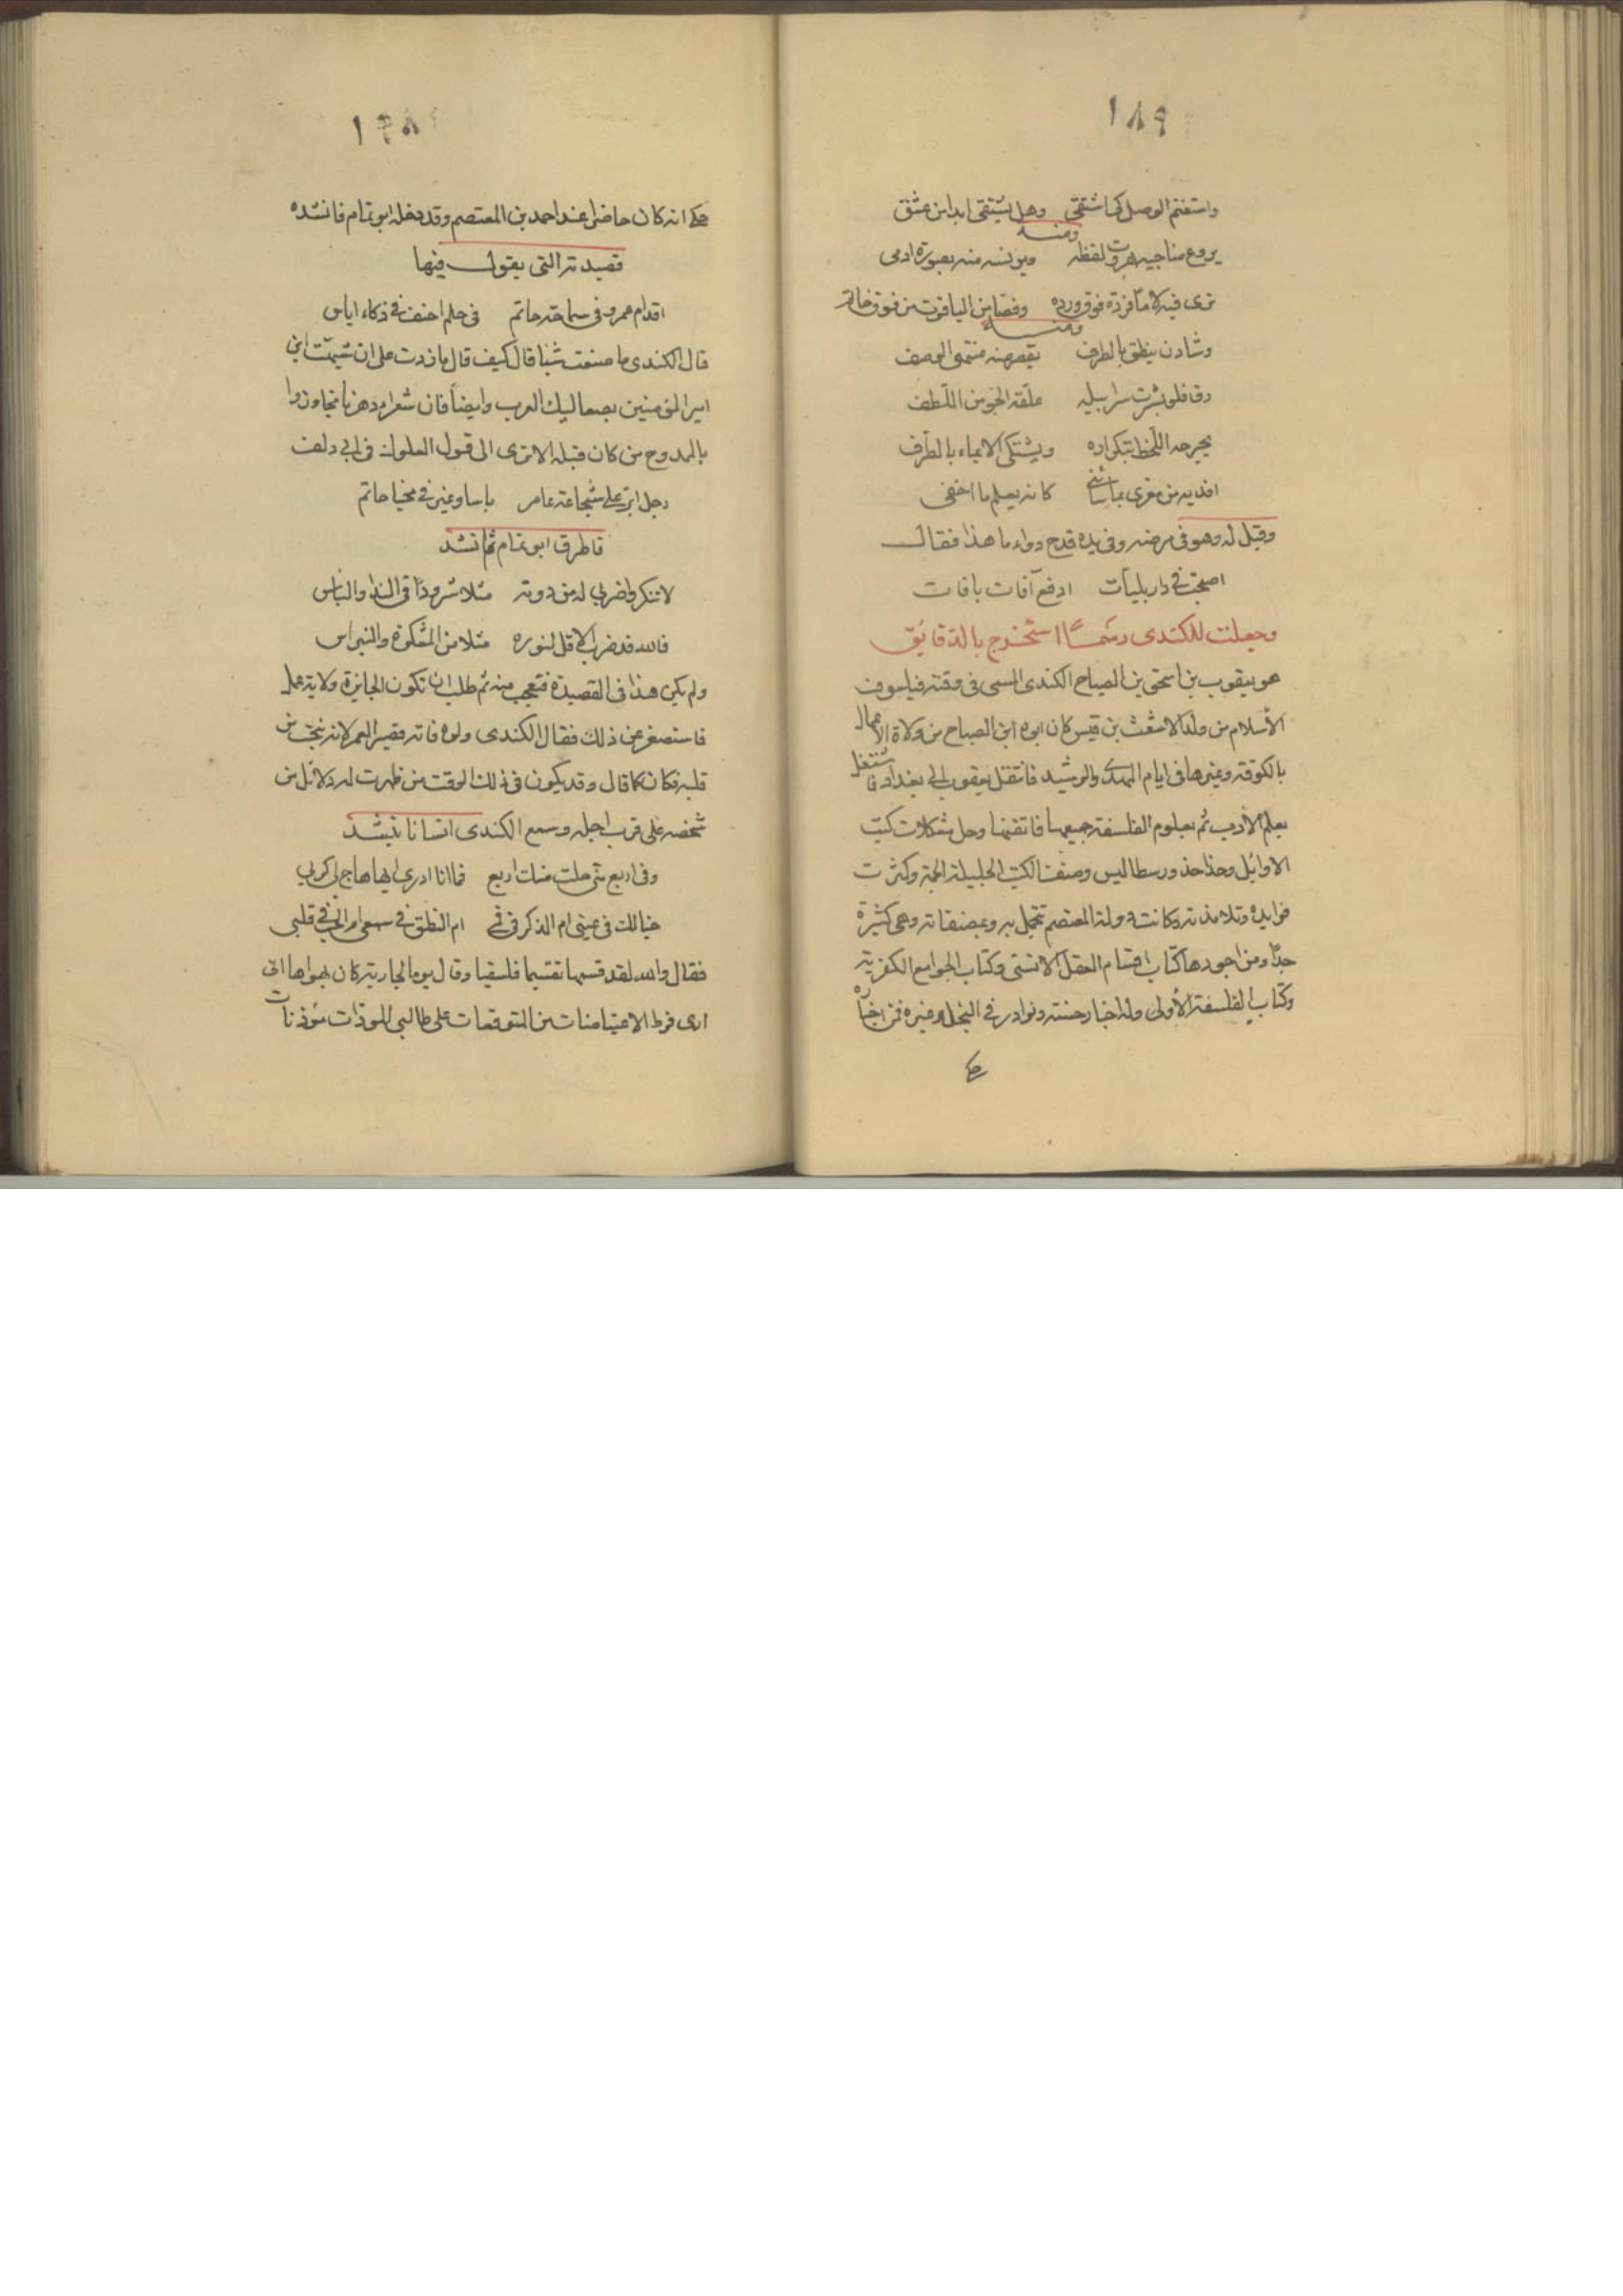 ١٨٩
واستغنم الوصل كما شقتى وهل يشتقى ابدا من عشق
ومنه
يروع مناجيه هروت لفظه ويونسه منه بصورة ادمى
ترى فيه لاما فردة فوق ورده وفصا من الياقوت من فوق خاتم
ومنه
وشادن ينطق بالطرف يقصر عنه منتهى الوصف
دق فلو بشرت سرابيله علقه الجو من اللطف
يجرحه اللحظ بتكراره ويشتكى الايماء بالطرف
افديه من مغرى بما سائنى كانه يعلم ما اخفى
وقيل له وهو فى مرضه وفى يده قدح دواء ما هذا فقال
اصبحت فى دار بليات ادفع آفات بافات
وجعلت للكندى رسما استخرج بالدقائق
هو يعقوب بن اسحق بن الصباح الكندى المسمى فى وقته فيلسوف
الأسلام من ولد الاشعث بن قيس كان ابوه ابن الصباح من ولاة الاعمال
بالكوفة وغيرها فى ايام المهدى والرشيد فانتقل يعقوب الى بغداد فاشتغل
بعلم الأدب ثم بعلوم الفلسفة جميعها فاتقنها وحل مشكلات كتب
الاوائل وحذا حذو رسطاليس وصنف الكتب الجليلة الجمة وكثرت
فوايده وتلامذته وكانت دولة المعتصم تتجمل به وبمصنفاته وهى كثيرة
جدا ومن اجودها كتاب اقسام العقل الانسى وكتاب الجوامع الكفرية
وكتاب الفلسفة الأولى وله اخبار حسنة ونوادر فى البخل وغيره فمن اخباره
حكى
حكى انه كان حاضرا عند احمد بن المعتصم وقد دخل ابو تمام فانشده
قصيدته التى يقول فيها
اقدام عمرو فى سماحة حاتم فى حلم احنف فى ذكاء اياس
قال الكندى ما صنعت شيئا قال كيف قال ما زدت على ان شبهت ابن
امير المؤمنين بصعاليك العرب وايضا فان شعراء دهرنا تجاوزوا
بالممدوح من كان قبله الا ترى الى قول العلوك فى ابى دلف
رجل ابر على شجاعة عامر باسا وغبر فى محيا حاتم
فاطرق ابو تمام ثم انشد
لا تنكروا ضربى له من دونه مثلا شرودا فى الندا والباس
فالله قد ضرب الاقل لنوره مثلا من المشكوة والنبراس
ولم يكن هذا فى القصيدة فتعجب منه ثم طلب ان تكون الجايزة ولاية عمل
فاستصغر عن ذلك فقال الكندى ولوه فانه قصير العمر لانه ينحت من
قلبه فكان كما قال وقد يكون فى ذلك الوقت من ظهرت له دلائل من
شخصه على قرب اجله وسمع الكندى انسانا ينشد
وفى اربع منى حلت منك اربع فما انا ادرى ايها هاج لى كربى
خيالك فى عينى ام الذكر فى فمى ام النطق فى سمعى ام الحب فى قلبى
فقال والله لقد قسمها تقسيما فلسفيا وقال يوما لجارية كان يهواها انى
ارى فرط الاعتياصات من المتوقعات على طالبى المودات مؤذنات